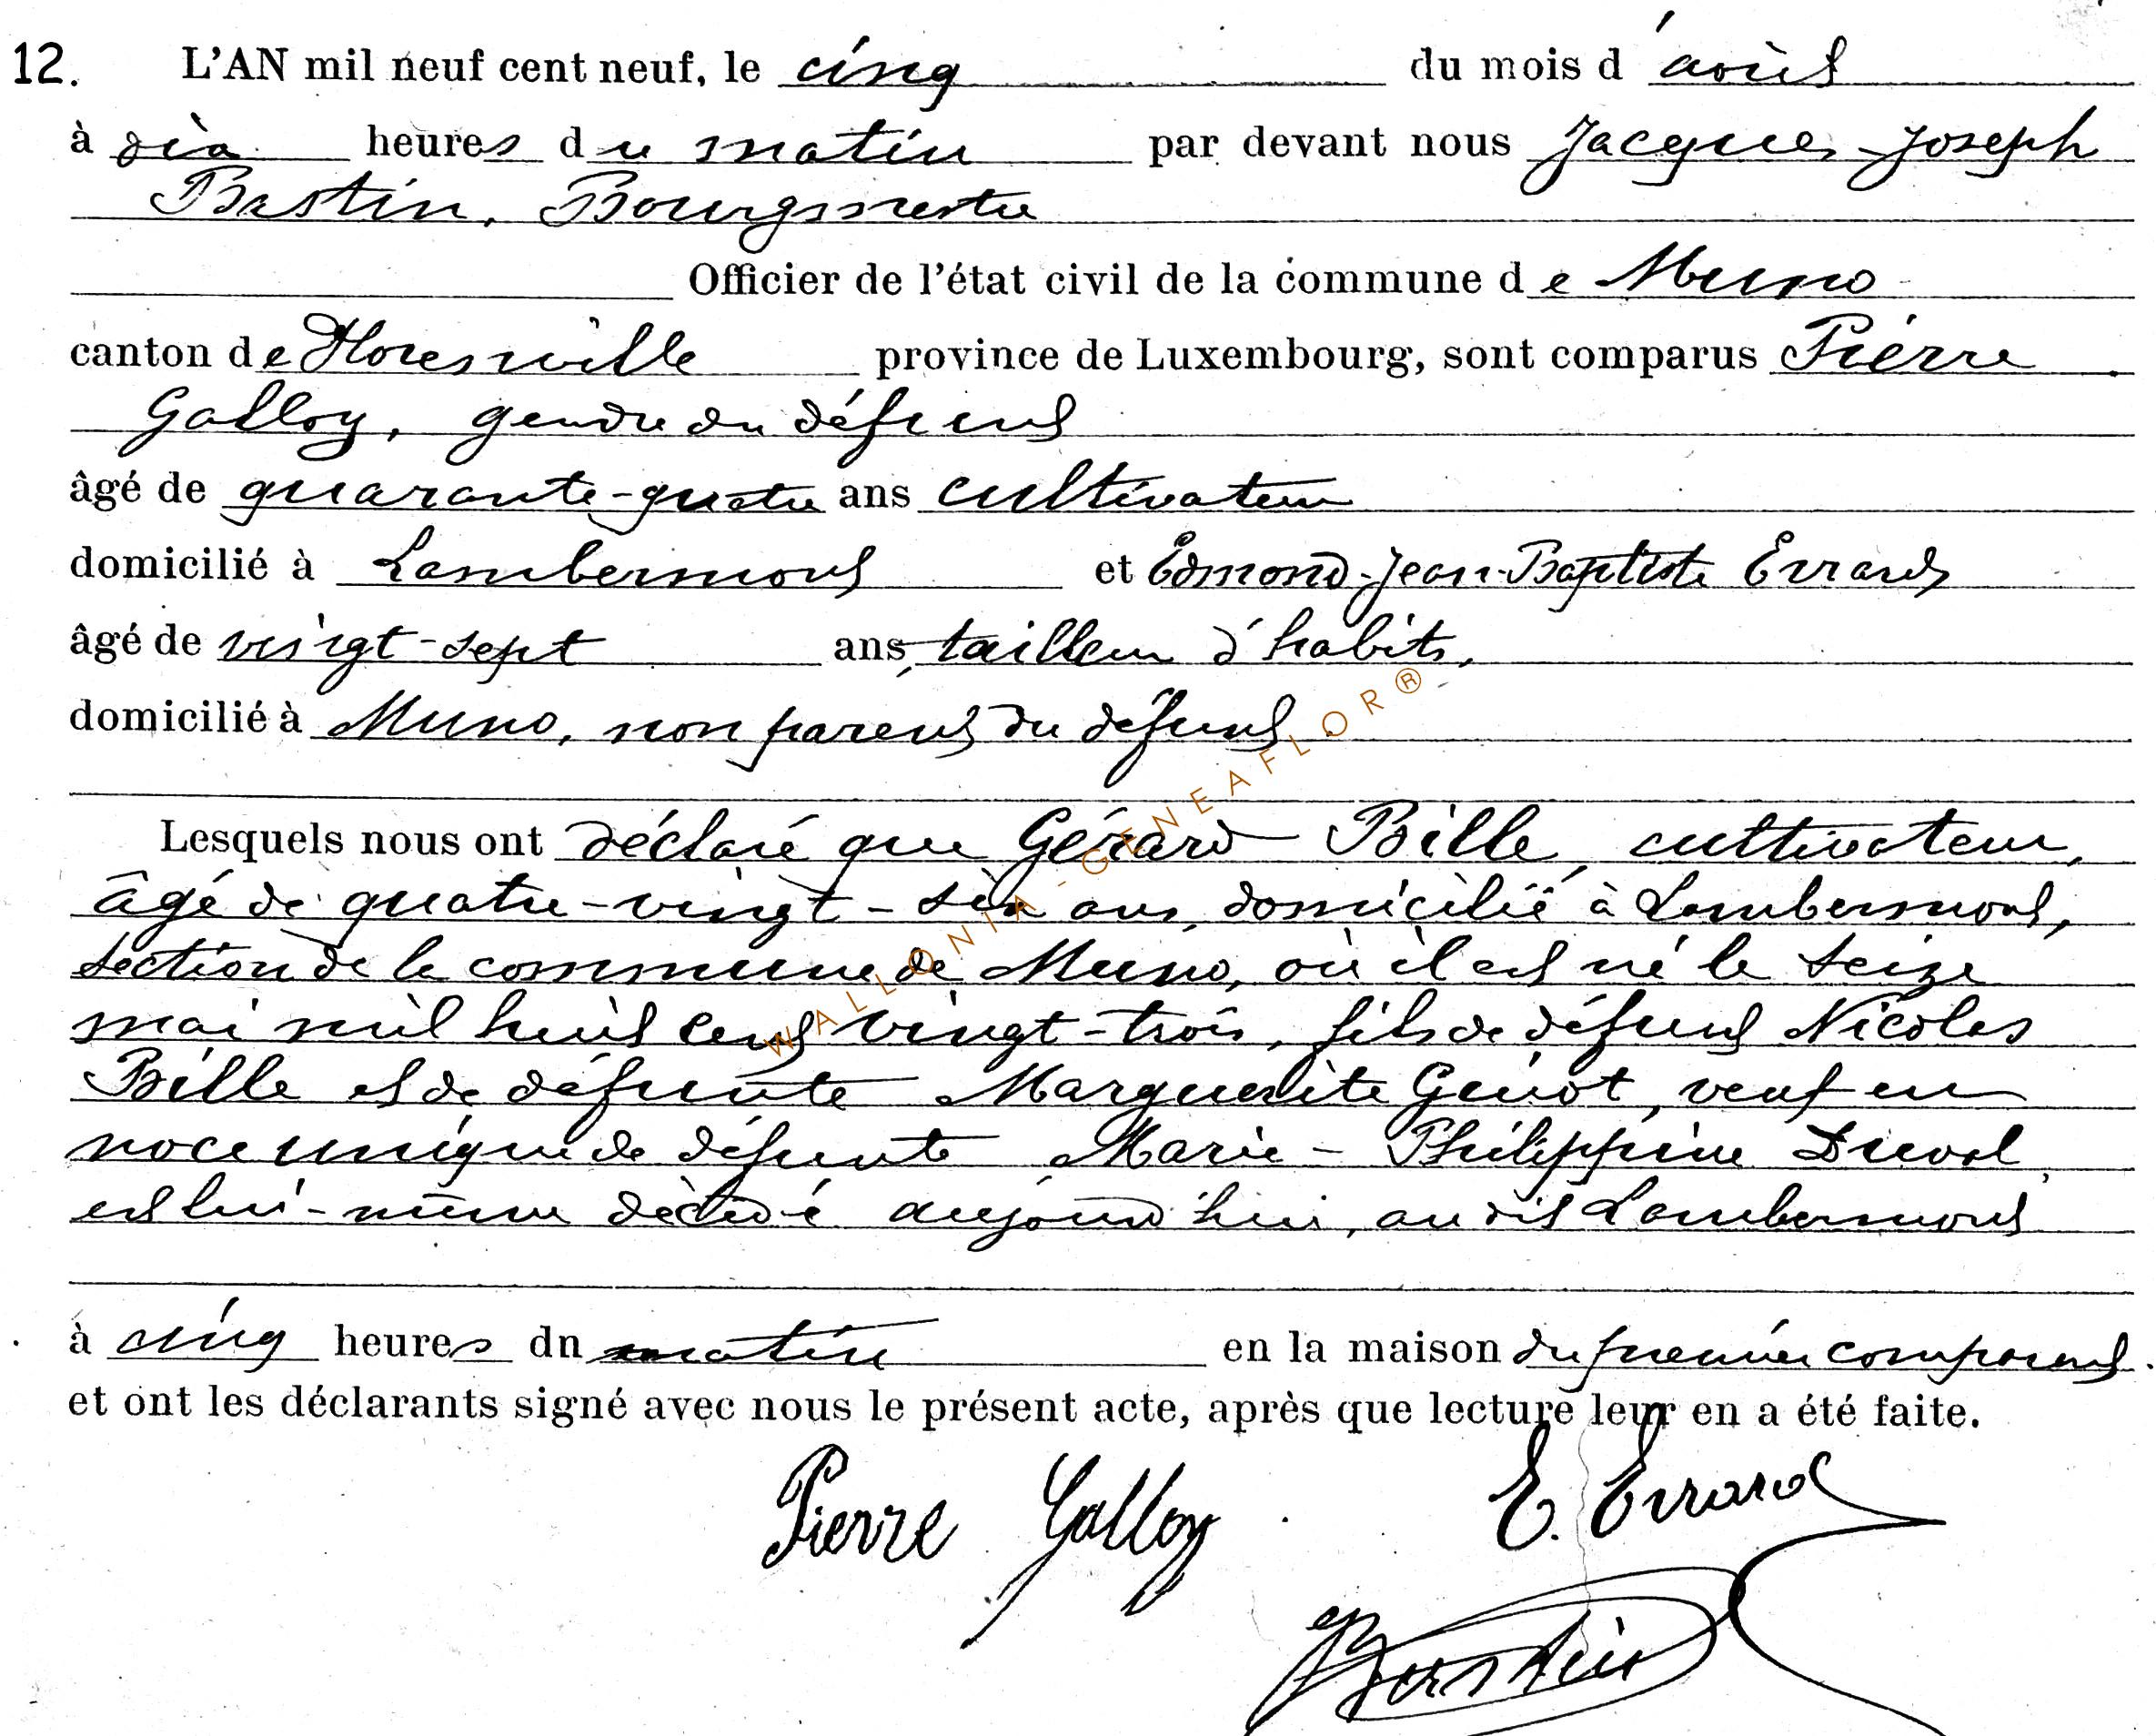 12. L'AN mil neuf cent neuf, le cinq du mois d'août
à dix heures du matin par devant nous Jacques-Joseph
Bastin, Bourgmestre
Officier de l'état civil de la commune de Muno
canton de Florenville province de Luxembourg, sont comparus Pierre
Galloy, gendre du défunt
âgé de quarante-quatre ans cultivateur
domicilié à Lambermont et Edmond-Jean-Baptiste Errard
âgé de vingt-sept ans, tailleur d'habits,
domicilié à Muno, non parent du défunt
Lesquels nous ont déclaré que Gérard Bille, cultivateur,
âgé de quatre-vingt-six ans, domicilié à Lambermont,
section de la commune de Muno, où il est né le seize
mai mil huit cent vingt-trois, fils de défunt Nicolas
Bille et de défunte Marguerite Genot, veuf en
noce unique de défunte Marie-Philippine Duval,
est lui-même décédé aujourd'hui, au dit Lambermont
à cinq heures du matin en la maison du premier comparant.
et ont les déclarants signé avec nous le présent acte, après que lecture leur en a été faite.
Pierre Galloy E. Errard
Bastin
WALLONIA-GENEAFLOR®